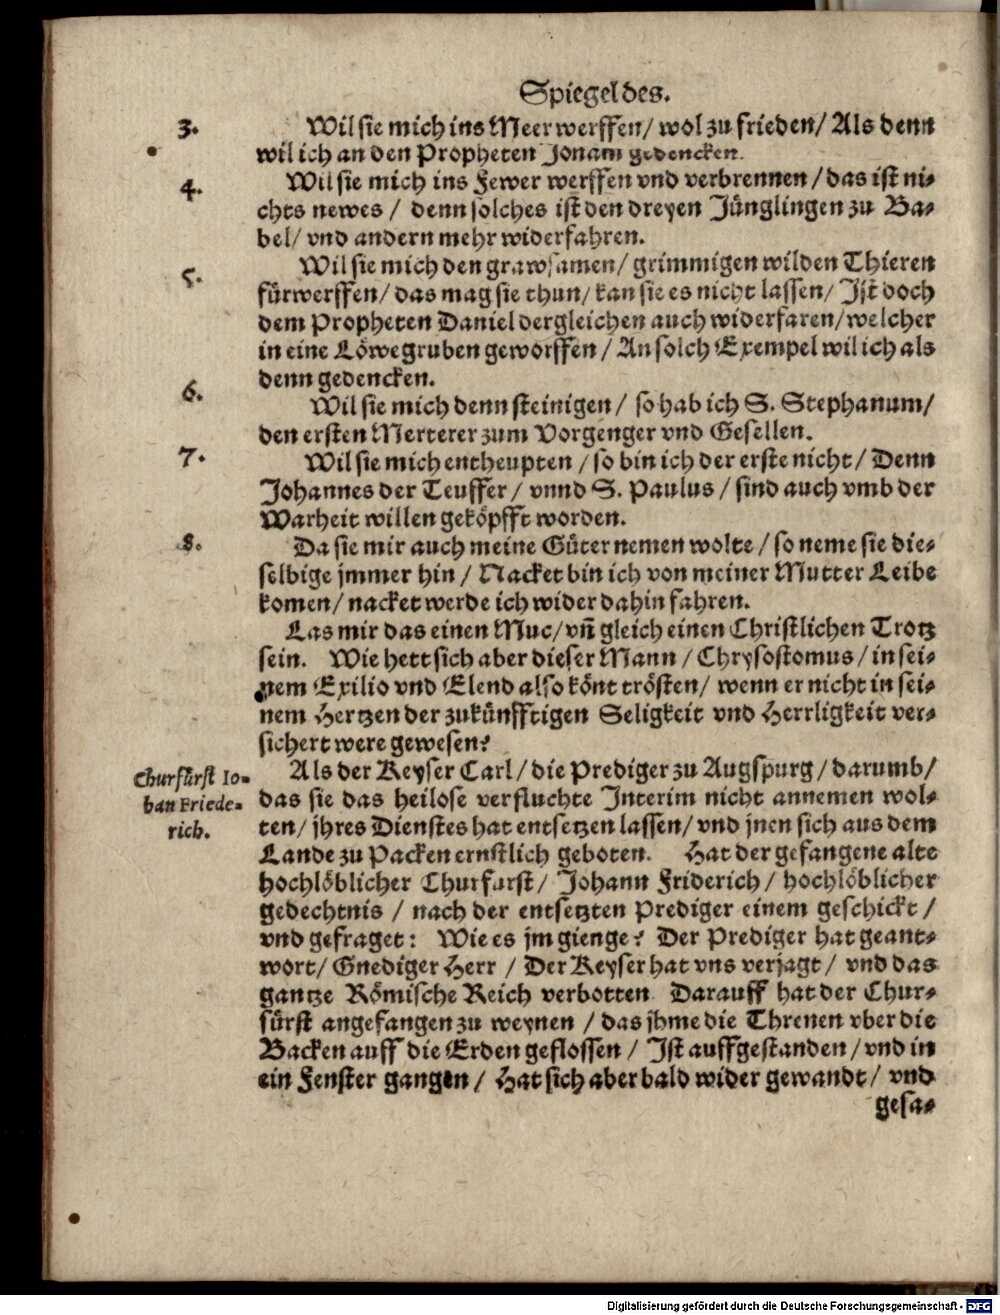 Spiegel des.
3. Wil sie mich ins Meer werffen/ wol zu frieden/ Als denn
wil ich an den Propheten Jonam gedencken.
4. Wil sie mich ins Fewer werffen vnd verbrennen / das ist ni-
chts newes / denn solches ist den dreyen Jünglingen zu Ba-
bel/ vnd andern mehr widerfahren.
5. Wil sie mich den grawsamen/ grimmigen wilden Thieren
fürwerffen/ das mag sie thun/ kan sie es nicht lassen/ Jst doch
dem Propheten Daniel dergleichen auch widerfaren/ welcher
in eine Löwegruben geworffen / An solch Exempel wil ich als
denn gedencken.
6. Wil sie mich denn steinigen / so hab ich S. Stephanum/
den ersten Merterer zum Vorgenger vnd Gesellen.
7. Wil sie mich entheupten / so bin ich der erste nicht/ Denn
Johannes der Teuffer / vnnd S. Paulus / sind auch vmb der
Warheit willen geköpfft worden.
8. Da sie mir auch meine Güter nemen wolte / so neme sie die-
selbige jmmer hin / Nacket bin ich von meiner Mutter Leibe
komen/ nacket werde ich wider dahin fahren.
Las mir das einen Muc/ vn̄ gleich einen Christlichen Trotz
sein. Wie hett sich aber dieser Mann / Chrysostomus / in sei-
nem Exilio vnd Elend also könt trösten/ wenn er nicht in sei-
nem Hertzen der zukünfftigen Seligkeit vnd Herrligkeit ver-
sichert were gewesen?
Churfürst Io-
han Friede-
rich.
Als der Keyser Carl / die Prediger zu Augspurg / darumb/
das sie das heilose verfluchte Jnterim nicht annemen wol-
ten/ jhres Dienstes hat entsetzen lassen/ vnd jnen sich aus dem
Lande zu Packen ernstlich geboten. Hat der gefangene alte
hochlöblicher Churfurst / Johann Friderich / hochlöblicher
gedechtnis / nach der entsetzten Prediger einem geschickt /
vnd gefraget: Wie es jm gienge? Der Prediger hat geant-
wort/ Gnediger Herr / Der Keyser hat vns verjagt / vnd das
gantze Römische Reich verbotten Darauff hat der Chur-
fürst angefangen zu weynen / das jhme die Threnen vber die
Backen auff die Erden geflossen / Jst auffgestanden / vnd in
ein Fenster gangen / Hat sich aber bald wider gewandt / vnd
gesa-
Digitalisierung gefördert durch die Deutsche Forschungsgemeinschaft - DFG